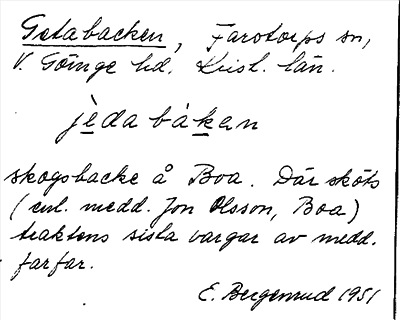 Getabacken, Farstorps sn,
V. Göinge hd. Krist. län.
jèdabákan
skogsbacke å Boa. Där sköts
(enl. medd. Jon Olsson, Boa)
traktens sista vargar av medd.
farfar.
E. Bergenrud 1951